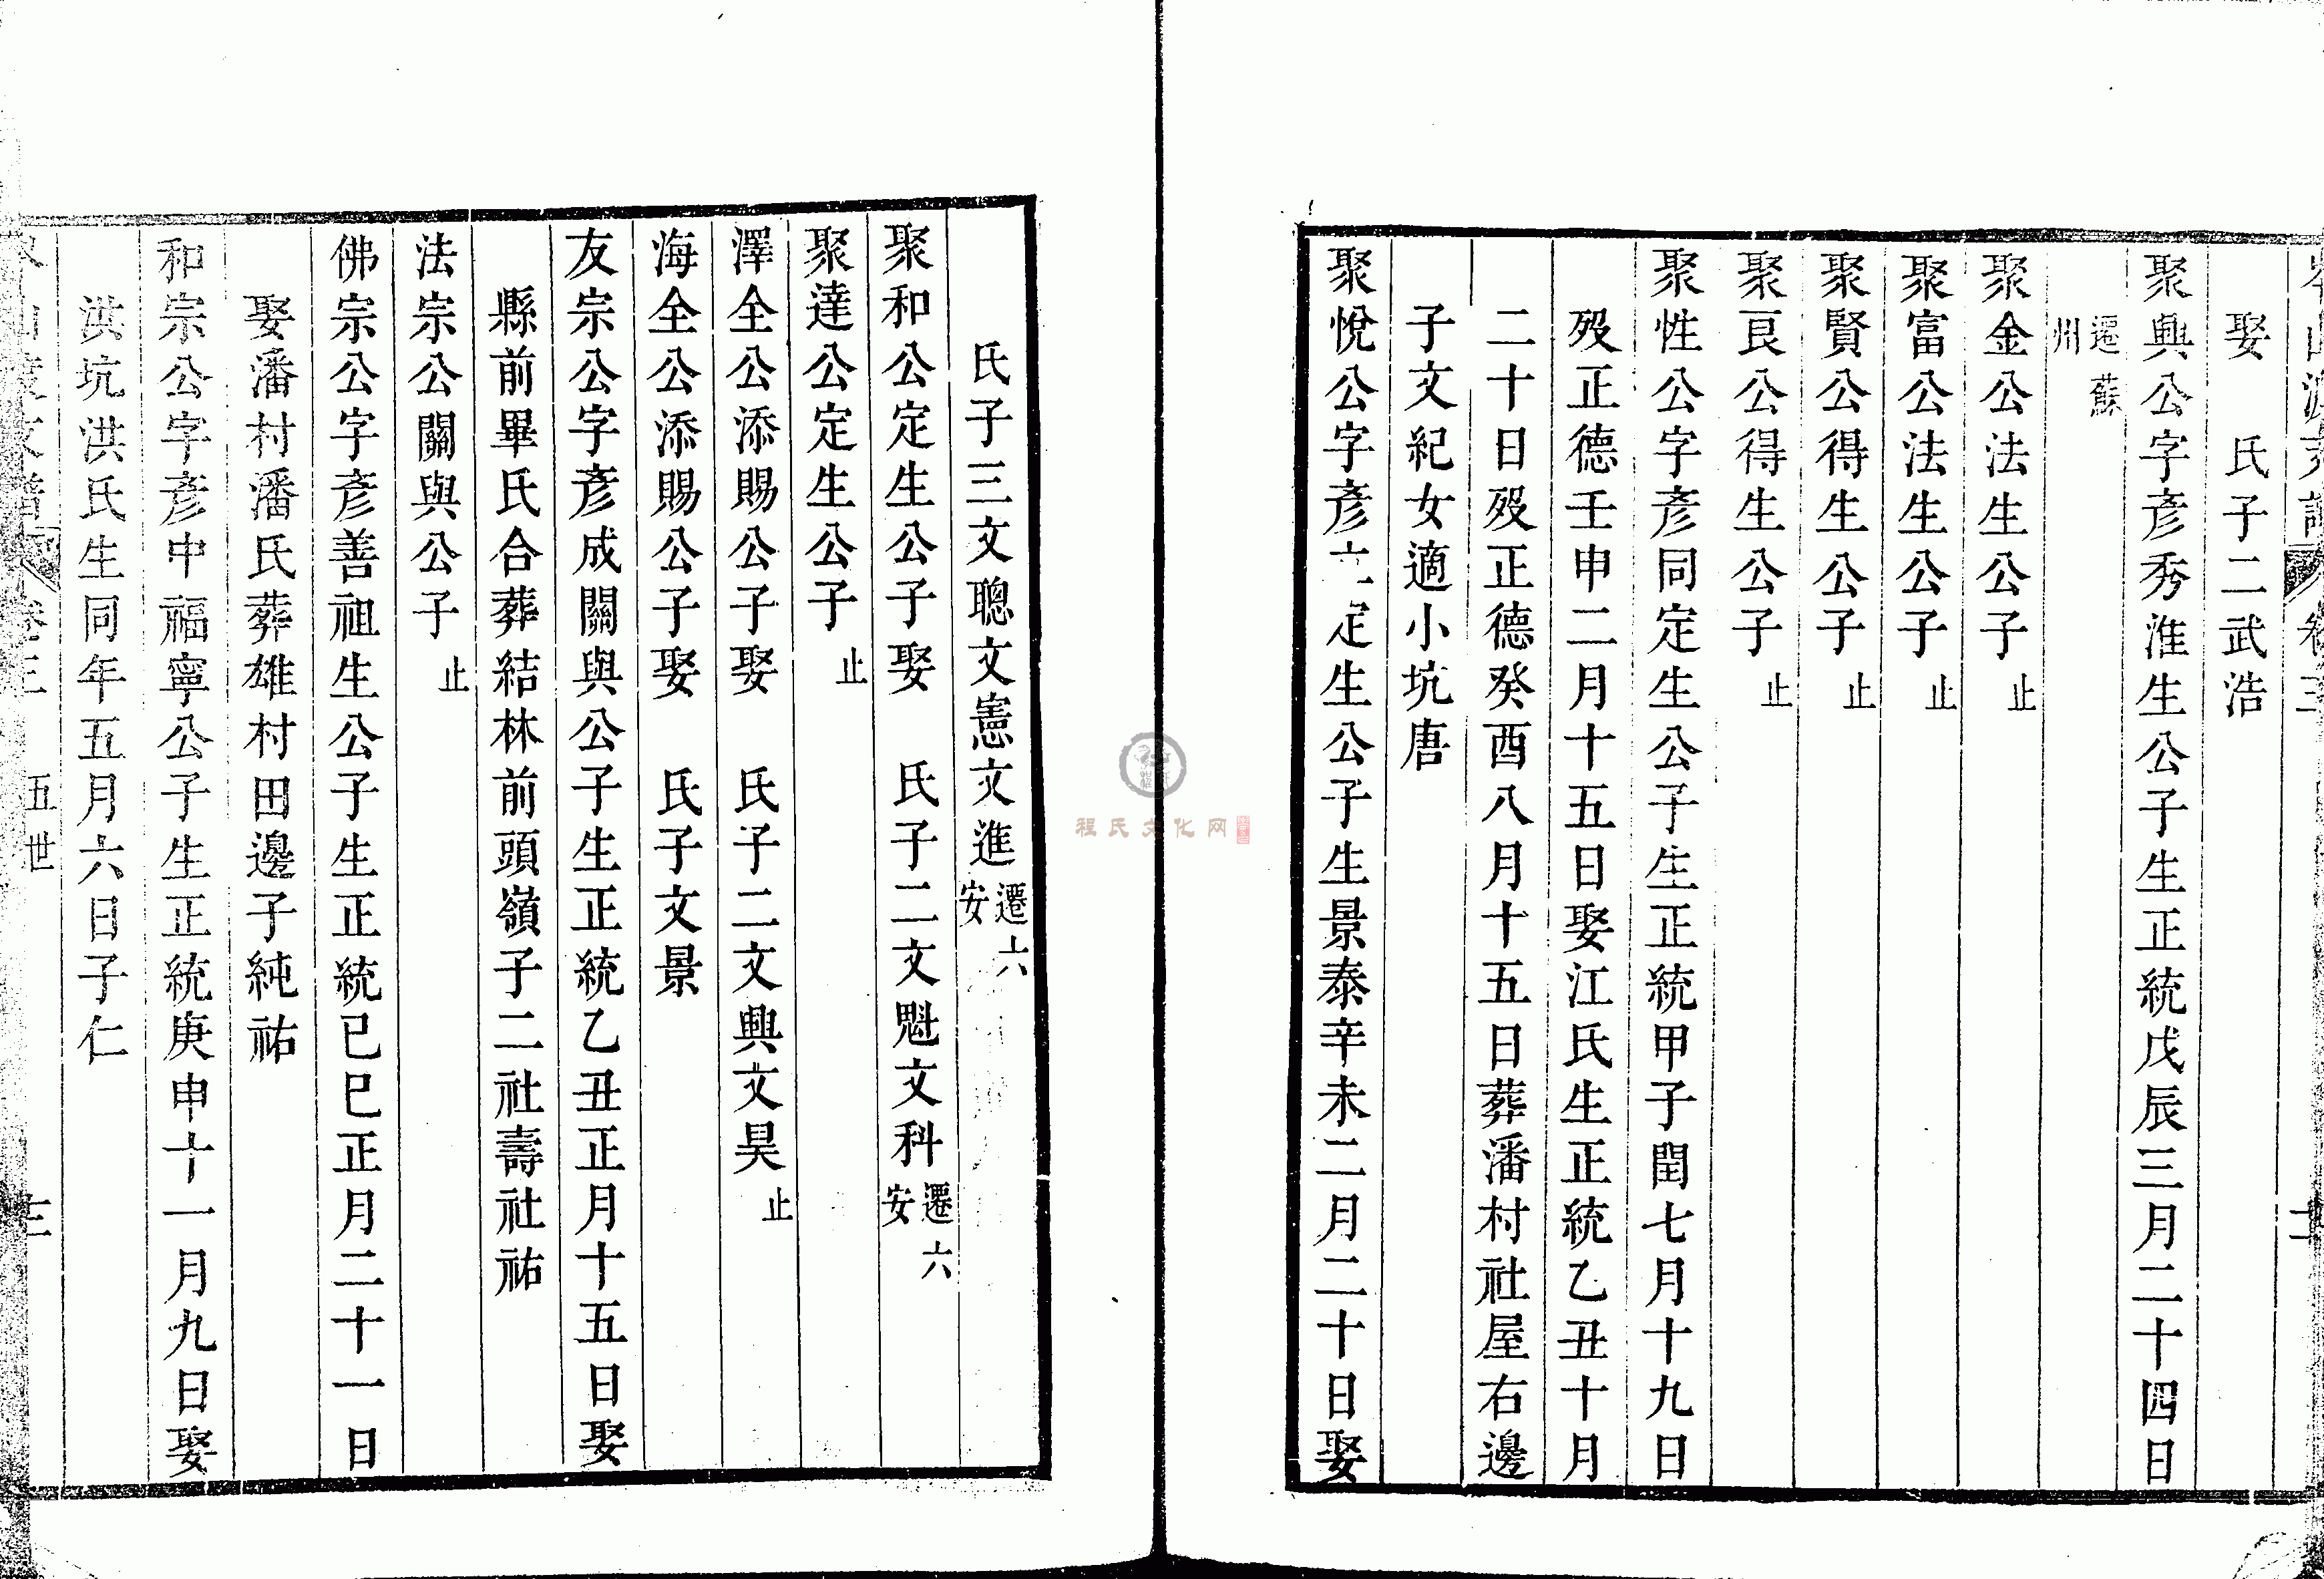 娶　氏子二武浩
聚興公字彥秀淮生公子生正統戊辰三月二十四日
遷蘇
州
聚金公法生公子止
聚富公法生公子止
聚賢公得生公子止
聚良公得生公子止
聚性公字彥同定生公子生正統甲子閏七月十九日
歿正德壬申二月十五日娶江氏生正統乙丑十月
二十日歿正德癸酉八月十五日葬潘村社屋右邊
子文紀女適小坑唐
聚悅公字彥定生公子生景泰辛未二月二十日娶
氏子三文聰文憲文進遷六安
聚和公定生公子娶　氏子二文魁文科遷六安
聚達公定生公子止
澤全公添賜公子娶　氏子二文興文昊止
海全公添賜公子娶　氏子文景
友宗公字彥成關與公子生正統乙丑正月十五日娶
縣前畢氏合葬結林前頭嶺子二社壽社祐
法宗公關與公子止
佛宗公字彥善祖生公子生正統己巳正月二十一日
娶潘村潘氏葬雄村田邊子純祐
和宗公字彥中福寧公子生正統庚申十一月九日娶
洪坑洪氏生同年五月六日子仁
卷三　五世　三
程氏文化网